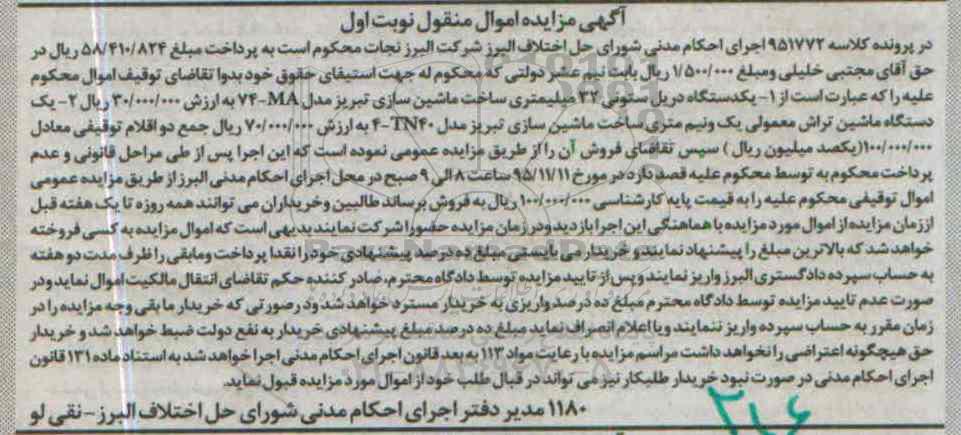 آگهی مزایده اموال منقول نوبت اول
در پرونده کلاسه ۹۵۱۷۷۲ اجرای احکام مدنی شورای حل اختلاف البرز شرکت البرز نجات محکوم است به پرداخت مبلغ ۵۸/۴۱۰/۸۲۴ ریال در
حق آقای مجتبی خلیلی ومبلغ ۱/۵۰۰/۰۰۰ ریال بابت نیم عشر دولتی که محکوم له جهت استیفای حقوق خود بدوا تقاضای توقیف اموال محکوم
علیه را که عبارت است از ۱- یکدستگاه دریل ستونی ۳۲ میلیمتری ساخت ماشین سازی تبریز مدل ۷۴-MA به ارزش ۳۰/۰۰۰/۰۰۰ ریال ۲- یک
دستگاه ماشین تراش معمولی یک ونیم متری ساخت ماشین سازی تبریز مدل ۴-TN۴۰ به ارزش ۷۰/۰۰۰/۰۰۰ ریال جمع دو اقلام توقیفی معادل
۱۰۰/۰۰۰/۰۰۰(یکصد میلیون ریال ) سپس تقاضای فروش آن را از طریق مزایده عمومی نموده است که این اجرا پس از طی مراحل قانونی و عدم
پرداخت محکوم به توسط محکوم علیه قصد دارد در مورخ ۹۵/۱۱/۱۱ ساعت ۸ الی ۹ صبح در محل اجرای احکام مدنی البرز از طریق مزایده عمومی
اموال توقیفی محکوم علیه را به قیمت پایه کارشناسی ۱۰۰/۰۰۰/۰۰۰ ریال به فروش برساند طالبین وخریداران می توانند همه روزه تا یک هفته قبل
از زمان مزایده از اموال مورد مزایده با هماهنگی این اجرا بازدید ودر زمان مزایده حضورا شرکت نمایند بدیهی است که اموال مزایده به کسی فروخته
خواهد شد که بالاترین مبلغ را پیشنهاد نمایند و خریدار می بایستی مبلغ ده درصد پیشنهادی خود را نقدا پرداخت ومابقی را ظرف مدت دو هفته
به حساب سپرده دادگستری البرز واریز نمایند و پس از تایید مزایده توسط دادگاه محترم، صادر کننده حکم تقاضای انتقال مالکیت اموال نماید ودر
صورت عدم تایید مزایده توسط دادگاه محترم مبلغ ده درصد واریزی به خریدار مسترد خواهد شد ودر صورتی که خریدار ما بقی وجه مزایده را در
زمان مقرر به حساب سپرده واریز ننمایند و یا اعلام انصراف نماید مبلغ ده درصد مبلغ پیشنهادی خریدار به نفع دولت ضبط خواهد شد و خریدار
حق هیچگونه اعتراضی را نخواهد داشت مراسم مزایده با رعایت مواد ۱۱۳ به بعد قانون اجرای احکام مدنی اجرا خواهد شد به استناد ماده ۱۳۱ قانون
اجرای احکام مدنی در صورت نبود خریدار طلبکار نیز می تواند در قبال طلب خود از اموال مورد مزایده قبول نماید.
۱۱۸۰ مدیر دفتر اجرای احکام مدنی شورای حل اختلاف البرز - نقی لو